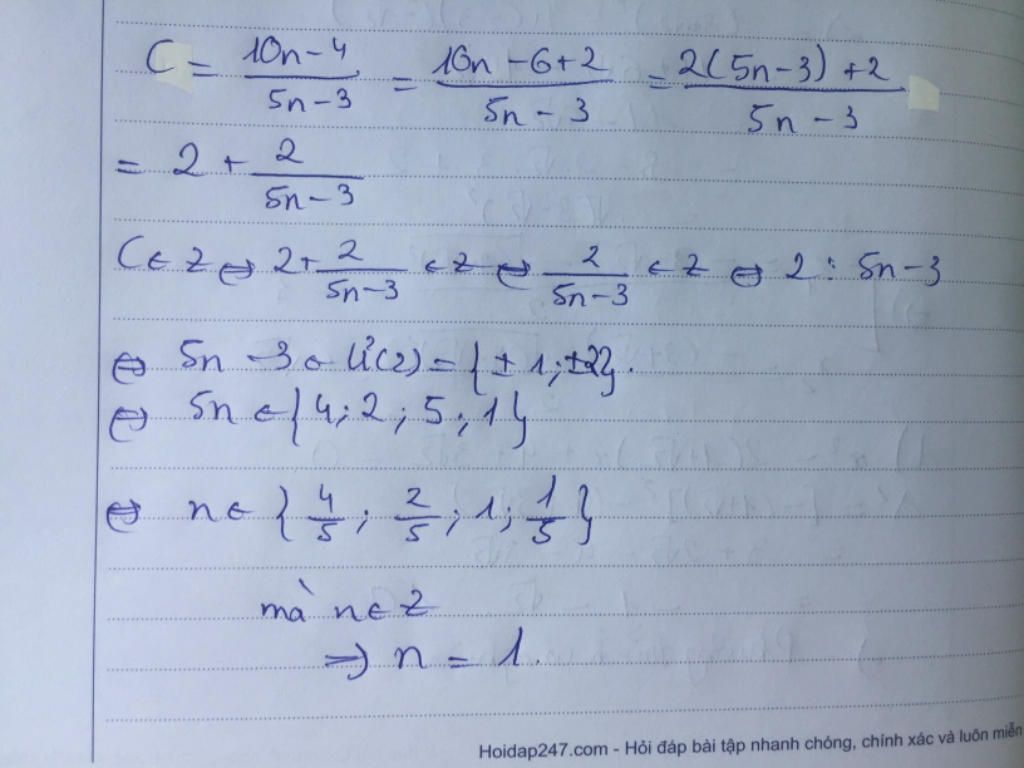 C = \frac{10n-4}{5n-3} = \frac{10n-6+2}{5n-3} = \frac{2(5n-3)+2}{5n-3}
= 2 + \frac{2}{5n-3}
C ∈ Z ⇔ 2 + \frac{2}{5n-3} ∈ Z ⇔ \frac{2}{5n-3} ∈ Z ⇔ 2 ⋮ 5n-3
⇔ 5n - 3 ∈ Ư(2) = {±1; ±2}.
⇔ 5n ∈ {4; 2; 5; 1}
⇔ n ∈ {\frac{4}{5}; \frac{2}{5}; 1; \frac{1}{5}}
mà n ∈ Z
⇒ n = 1.
Hoidap247.com - Hỏi đáp bài tập nhanh chóng, chính xác và luôn miễn